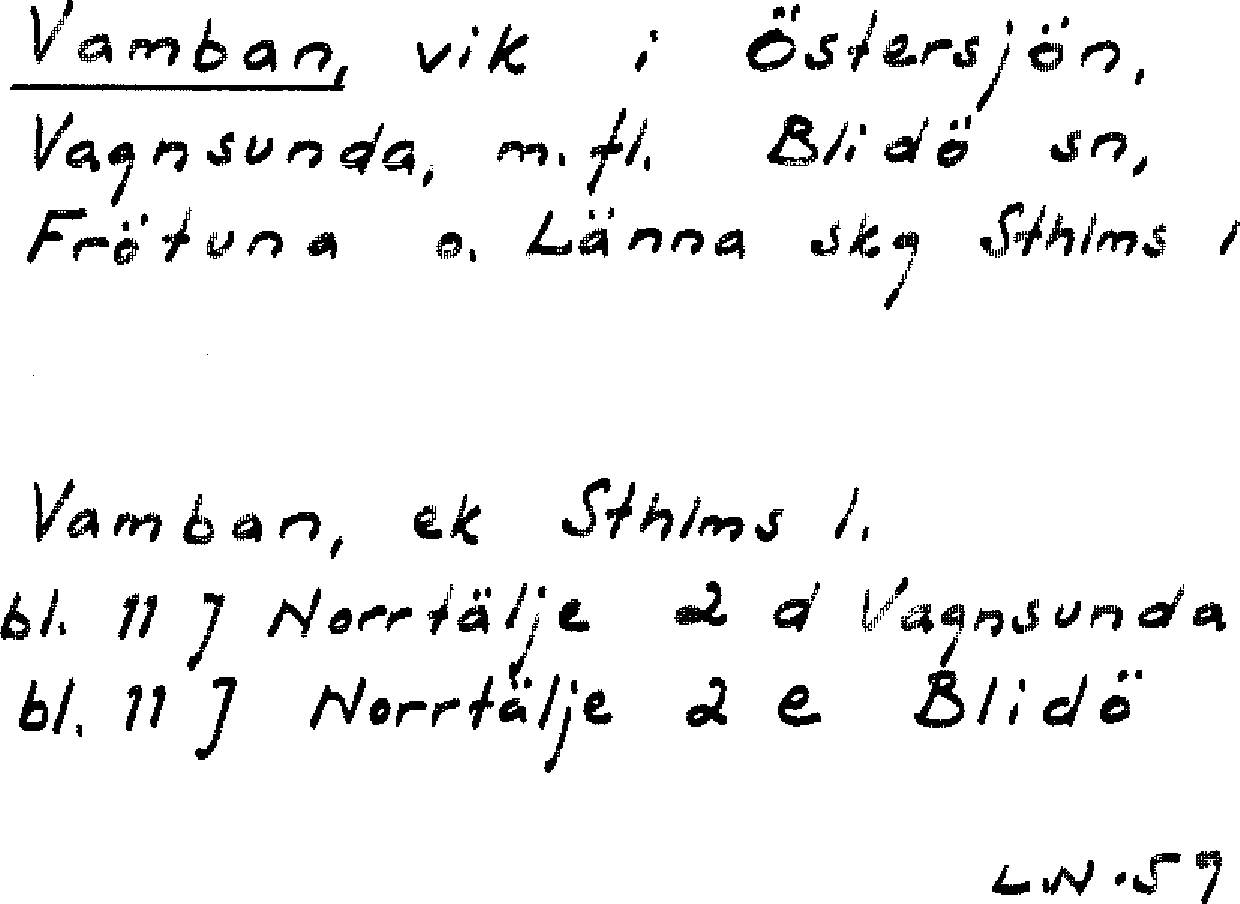 Vamban, vik i Östersjön,
Vagnsunda, m.fl. Blidö sn,
Frötuna o. Länna skg Sthlms l
Vamban, ek Sthlms l.
bl. 11 J Norrtälje 2 d Vagnsunda
bl. 11 J Norrtälje 2 e Blidö
LN.59